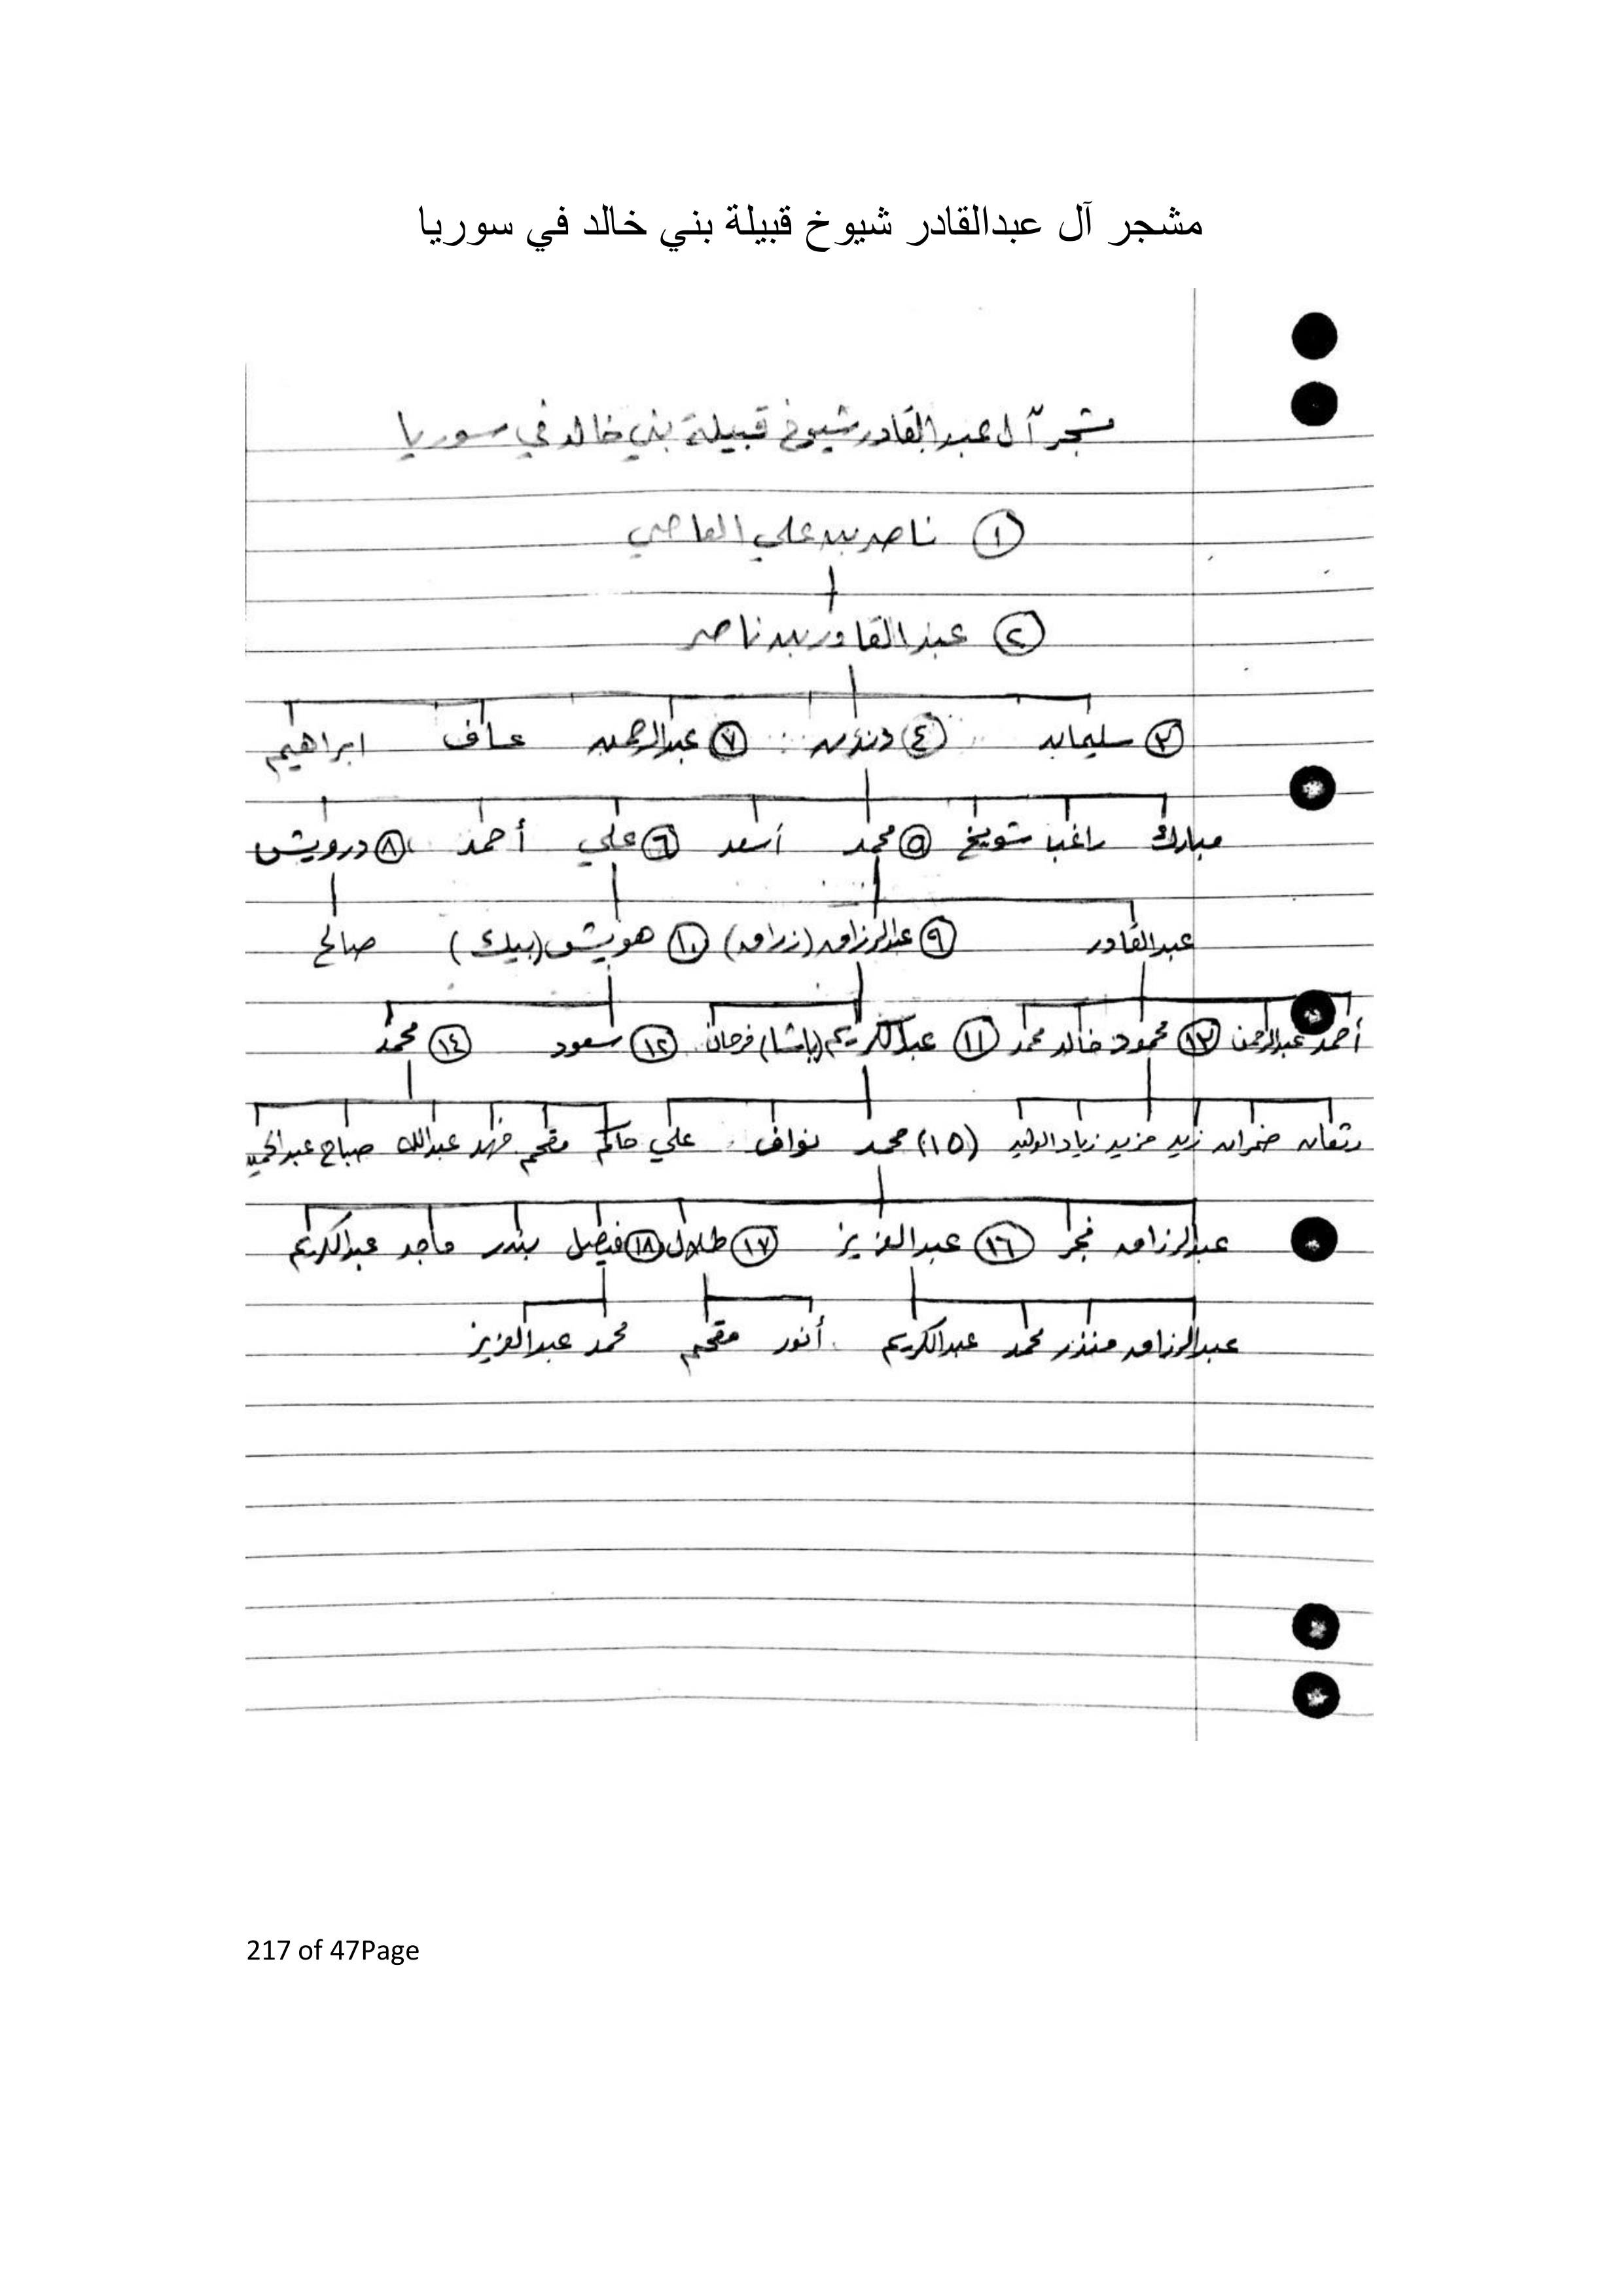 مشجر آل عبدالقادر شيوخ قبيلة بني خالد في سوريا
مشجر آل عبدالقادر شيوخ قبيلة بني خالد في سوريا
١ ناصر بن علي العاصي
٢ عبدالقادر بن ناصر
٣ سليمان ٤ دندن ٧ عبدالرحمن عساف ابراهيم
مبارك راغب شويخ ٥ محمد أسعد ٦ علي أحمد ٨ درويش
عبدالقادر ٩ عبدالرزاق (زراق) ١٠ هويش (بيك) صالح
أحمد عبدالرحمن ١٣ محمود خالد محمد ١١ عبدالكريم (باشا) فرحان ١٢ سعود ١٤ محمد
ضمران زيد مزيد زياد الوليد (١٥) محمد نواف علي حاكم مقحم فهد عبدالله صباح
عبدالرزاق فجر ١٦ عبدالعزيز ١٧ طلال ١٨ فيصل بندر ماجد عبدالكريم
عبدالرزاق منذر محمد عبدالكريم أنور مقحم محمد عبدالعزيز
217 of 47Page